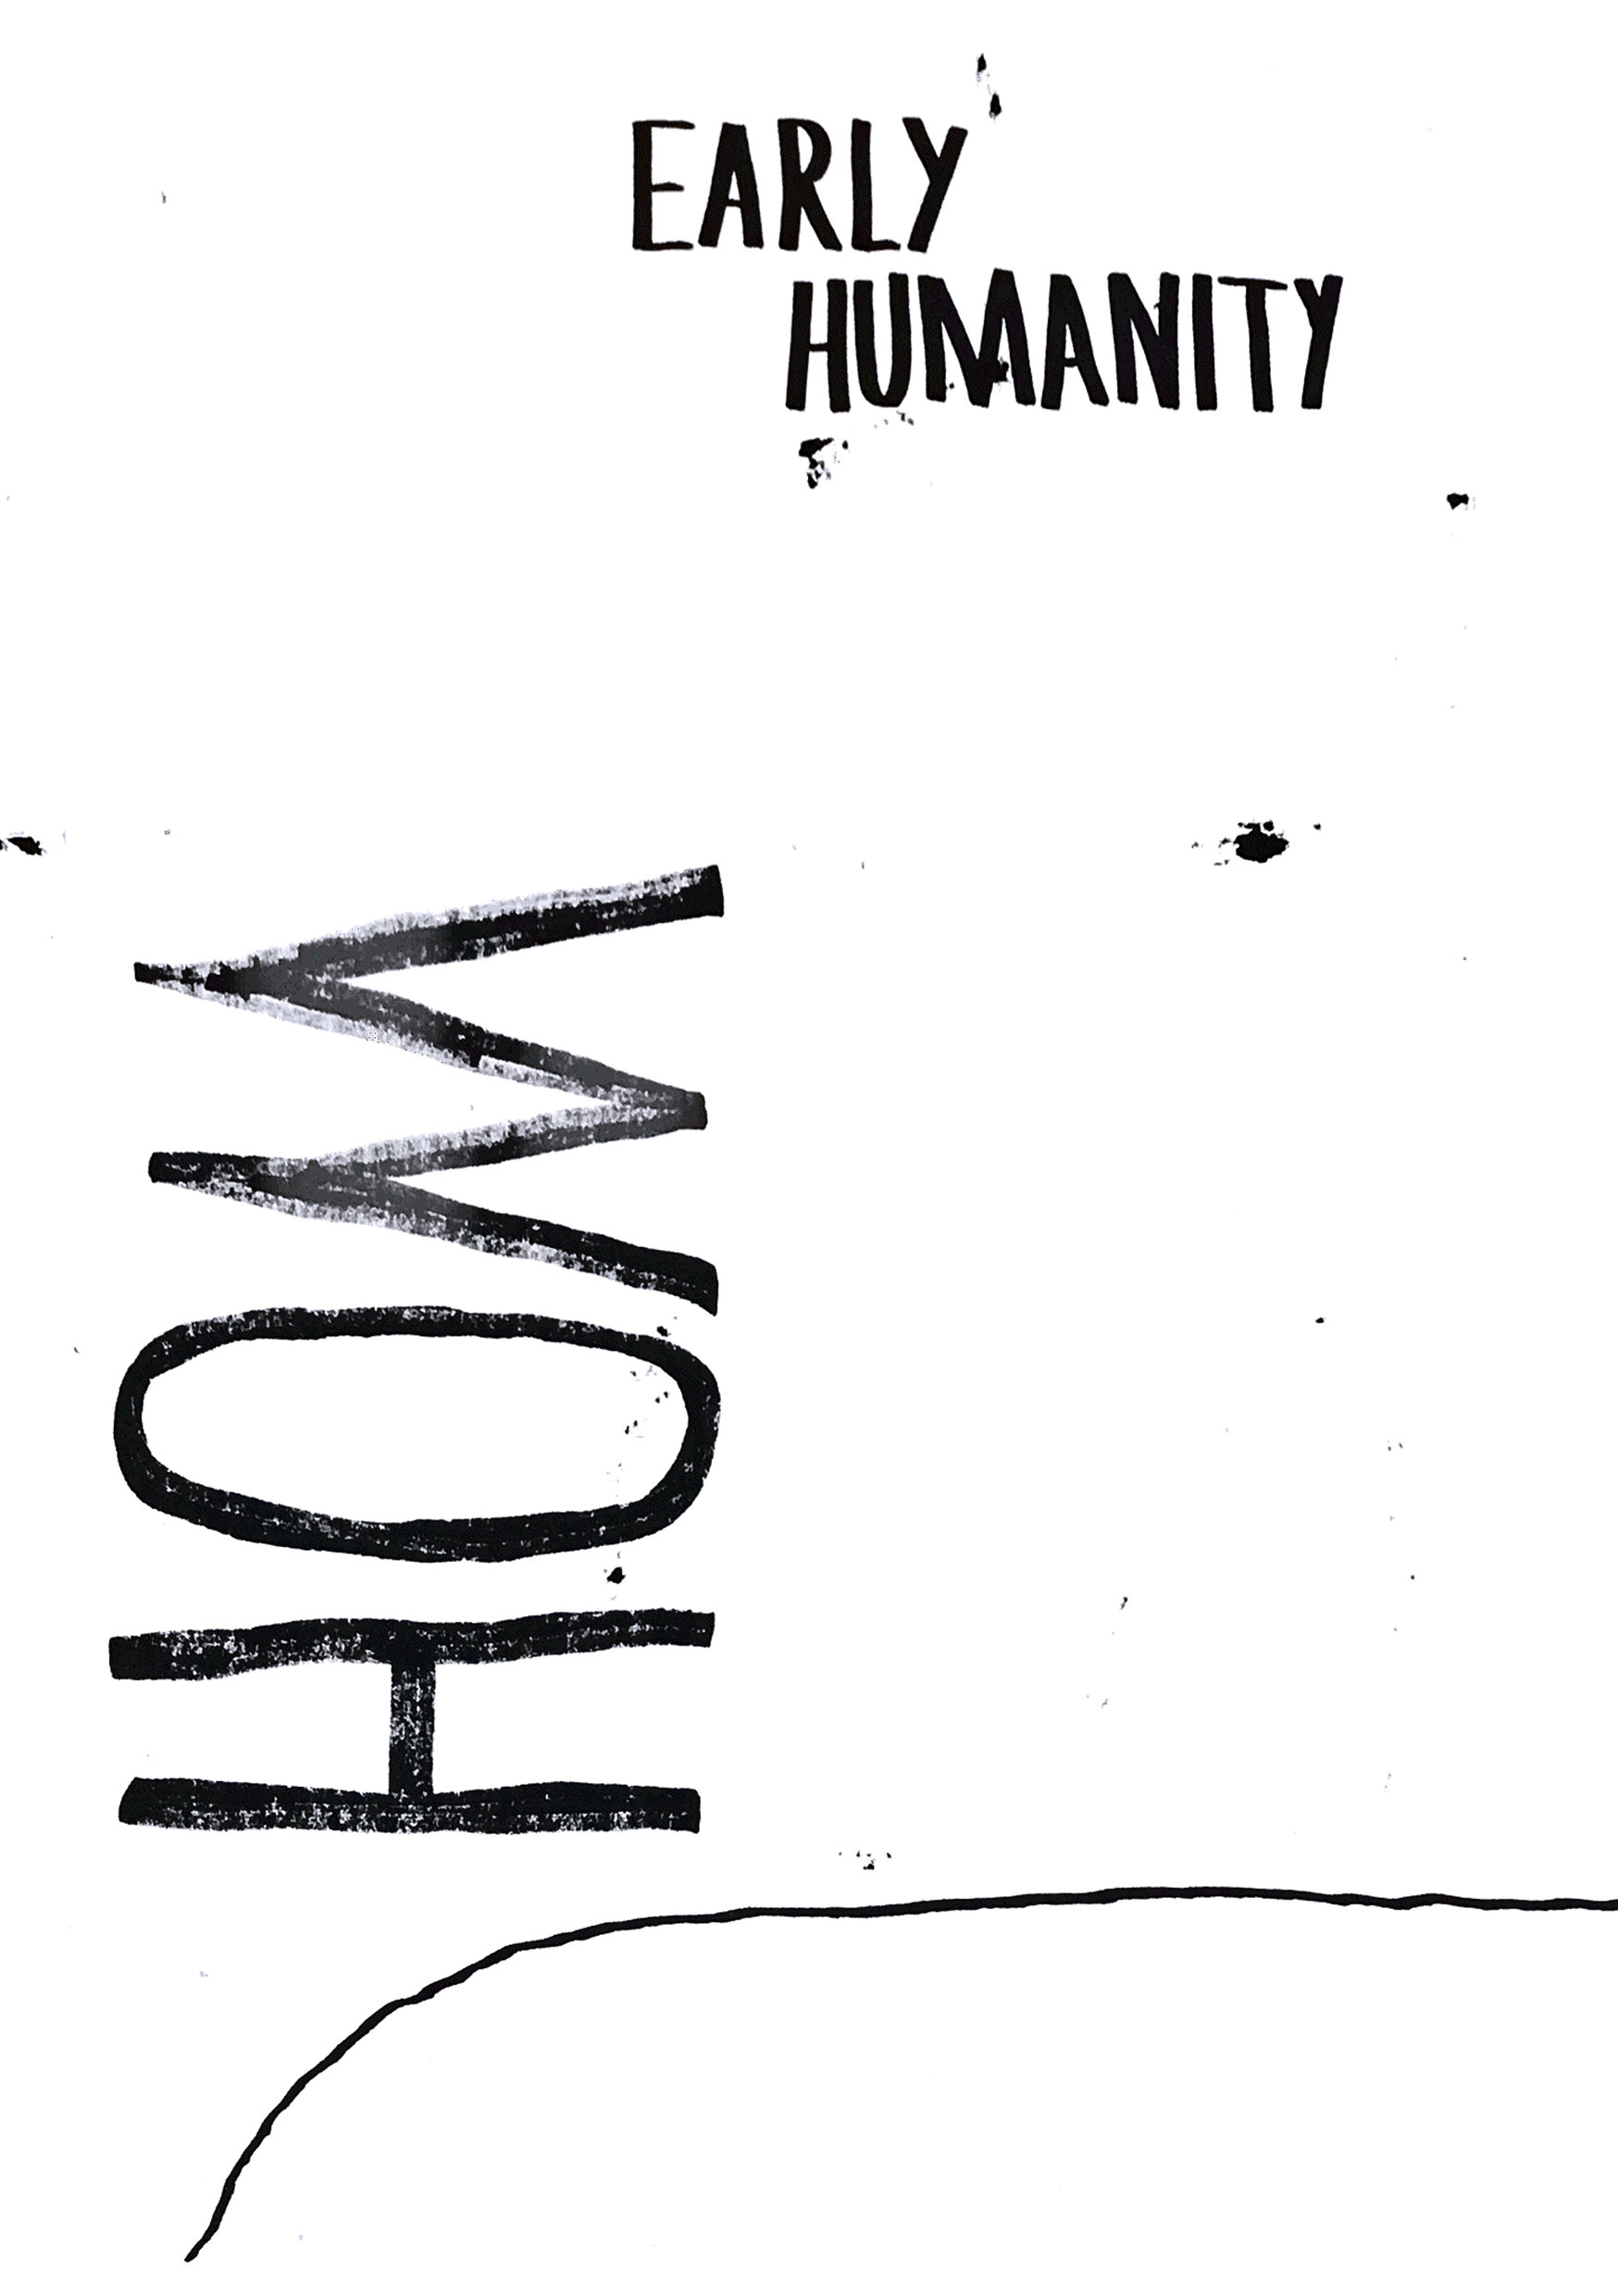 EARLY
HUMANITY
HOM